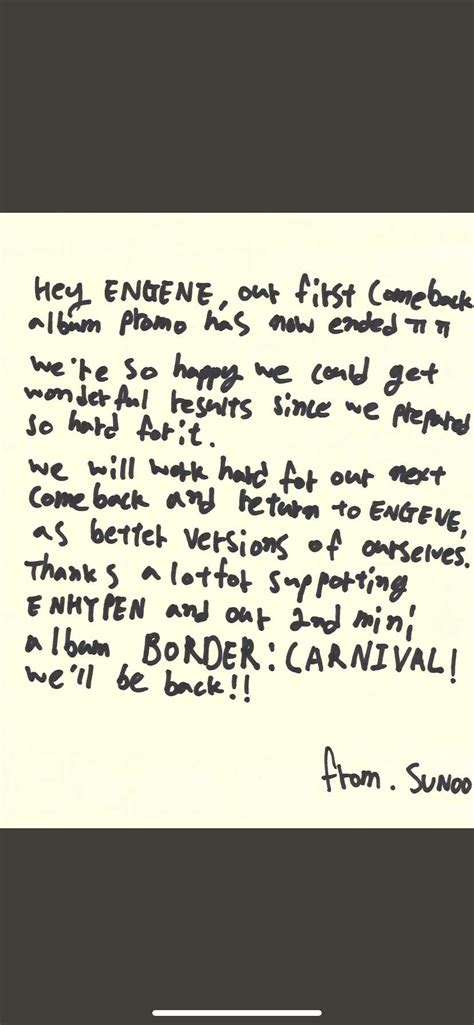 Hey ENGENE, our first Comeback
album promo has now ended ㅠㅠ
we're so happy we could get
wonderful results since we prepared
so hard for it.
we will work hard for our next
comeback and return to ENGENE,
as better versions of ourselves.
Thanks a lot for supporting
ENHYPEN and our 2nd mini
album BORDER: CARNIVAL!
we'll be back!!
from. SUNOO